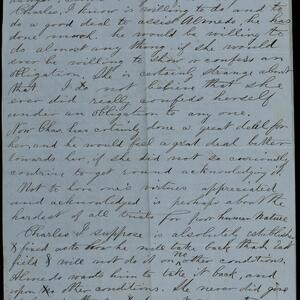 Charles I know is willing to do and to
do a good deal to assist Almeda, he has
done much. he would be willing to
do almost any thing, if she would
ever be willing to show or confess an
obligation. She is certainly strange about
that. I do not believe that she
ever did really confess herself
under an obligation to any one.
Now Chas. has certainly done a great deal for
her, and he would feel a great deal better
towards her, if she did not so
contrive to get round acknowledging it
Not to have one's virtues appreciated
and acknowledged is perhaps about the
hardest of all trials for poor human Nature
Charles I suppose is absolutely established
& fixed as to he will take back that East
field & will not do it on no other conditions.
Almeda wants him to take it back, and
upon other conditions. She never did give